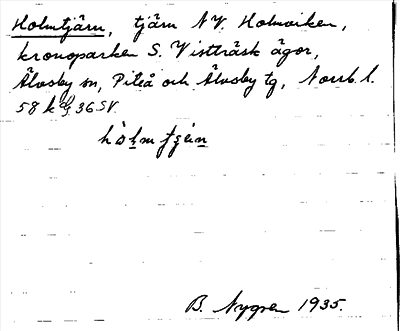 Holmtjärn, tjärn N.V. Holmviken,
kronoparken S. Vistträsk ägor,
Älvsby sn, Piteå och Älvsby tg, Norrb. l.
58 k 36 SV.
B. Nygren 1935.